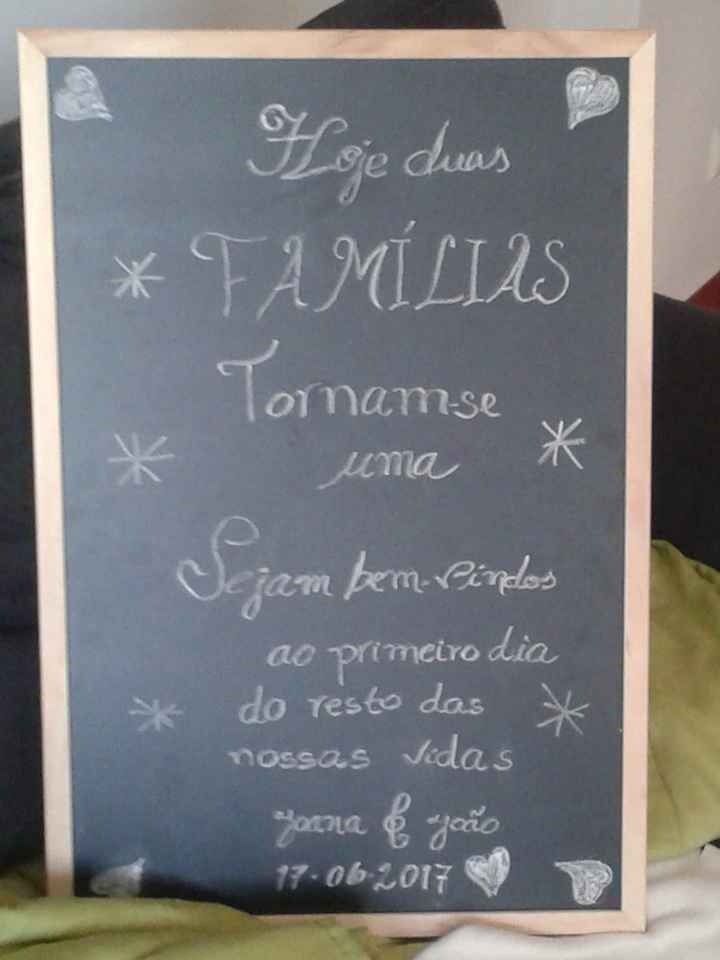 Hoje duas
FAMÍLIAS
Tornam-se
uma
Sejam bem-vindos
ao primeiro dia
do resto das
nossas vidas
Joana & João
17-06-2017